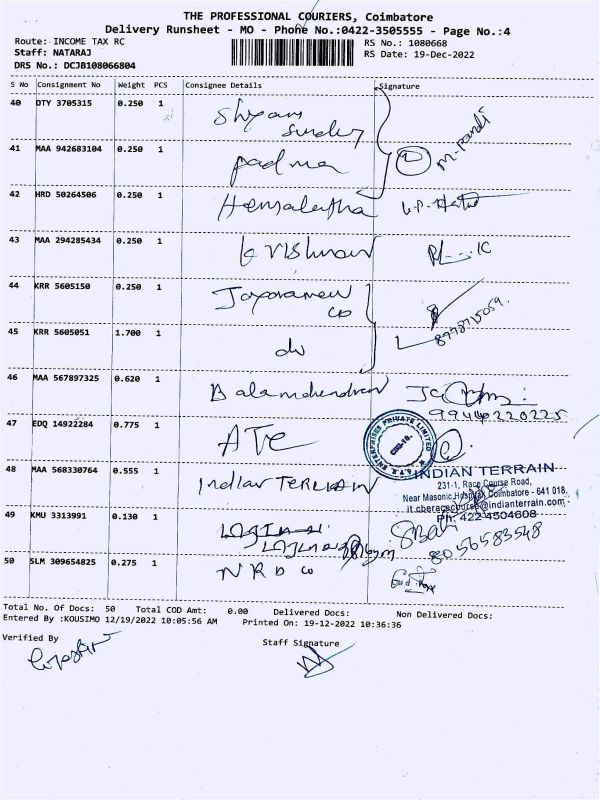 THE PROFESSIONAL COURIERS, Coimbatore
Delivery Runsheet - MO - Phone No.:0422-3505555 - Page No.:4
Route: INCOME TAX RC RS No.: 1080668
Staff: NATARAJ RS Date: 19-Dec-2022
DRS No.: DCJB108066804
S No Consignment No Weight PCS Consignee Details Signature
40 OTY 3705315 0.250 1 Shyam
Sunder
41 MAA 942683104 0.250 1 padma M. Pandi
42 HRD 50264506 0.250 1 Hemalatha
43 MAA 294285434 0.250 1
44 KRR 5605150 0.250 1
8778715059.
45 KRR 5605051 1.700 1 do
46 MAA 567897325 0.620 1
9944220225
47 EDQ 14922284 0.775 1 ATE
ENTERPRISES PRIVATE LIMITED
48 MAA 568330764 0.555 1 Indian TERRAIN INDIAN TERRAIN
231-1, Race Course Road,
Near Masonic Hospital, Coimbatore - 641 018.
it.cberacecourse@indianterrain.com
Ph: 422-4504608
49 KMU 3313991 0.130 1
8056583548
50 SLM 309654825 0.275 1 NRD
Total No. Of Docs: 50 Total COD Amt: 0.00 Delivered Docs: Non Delivered Docs:
Entered By :KOUSIMO 12/19/2022 10:05:56 AM Printed On: 19-12-2022 10:36:36
Verified By Staff Signature